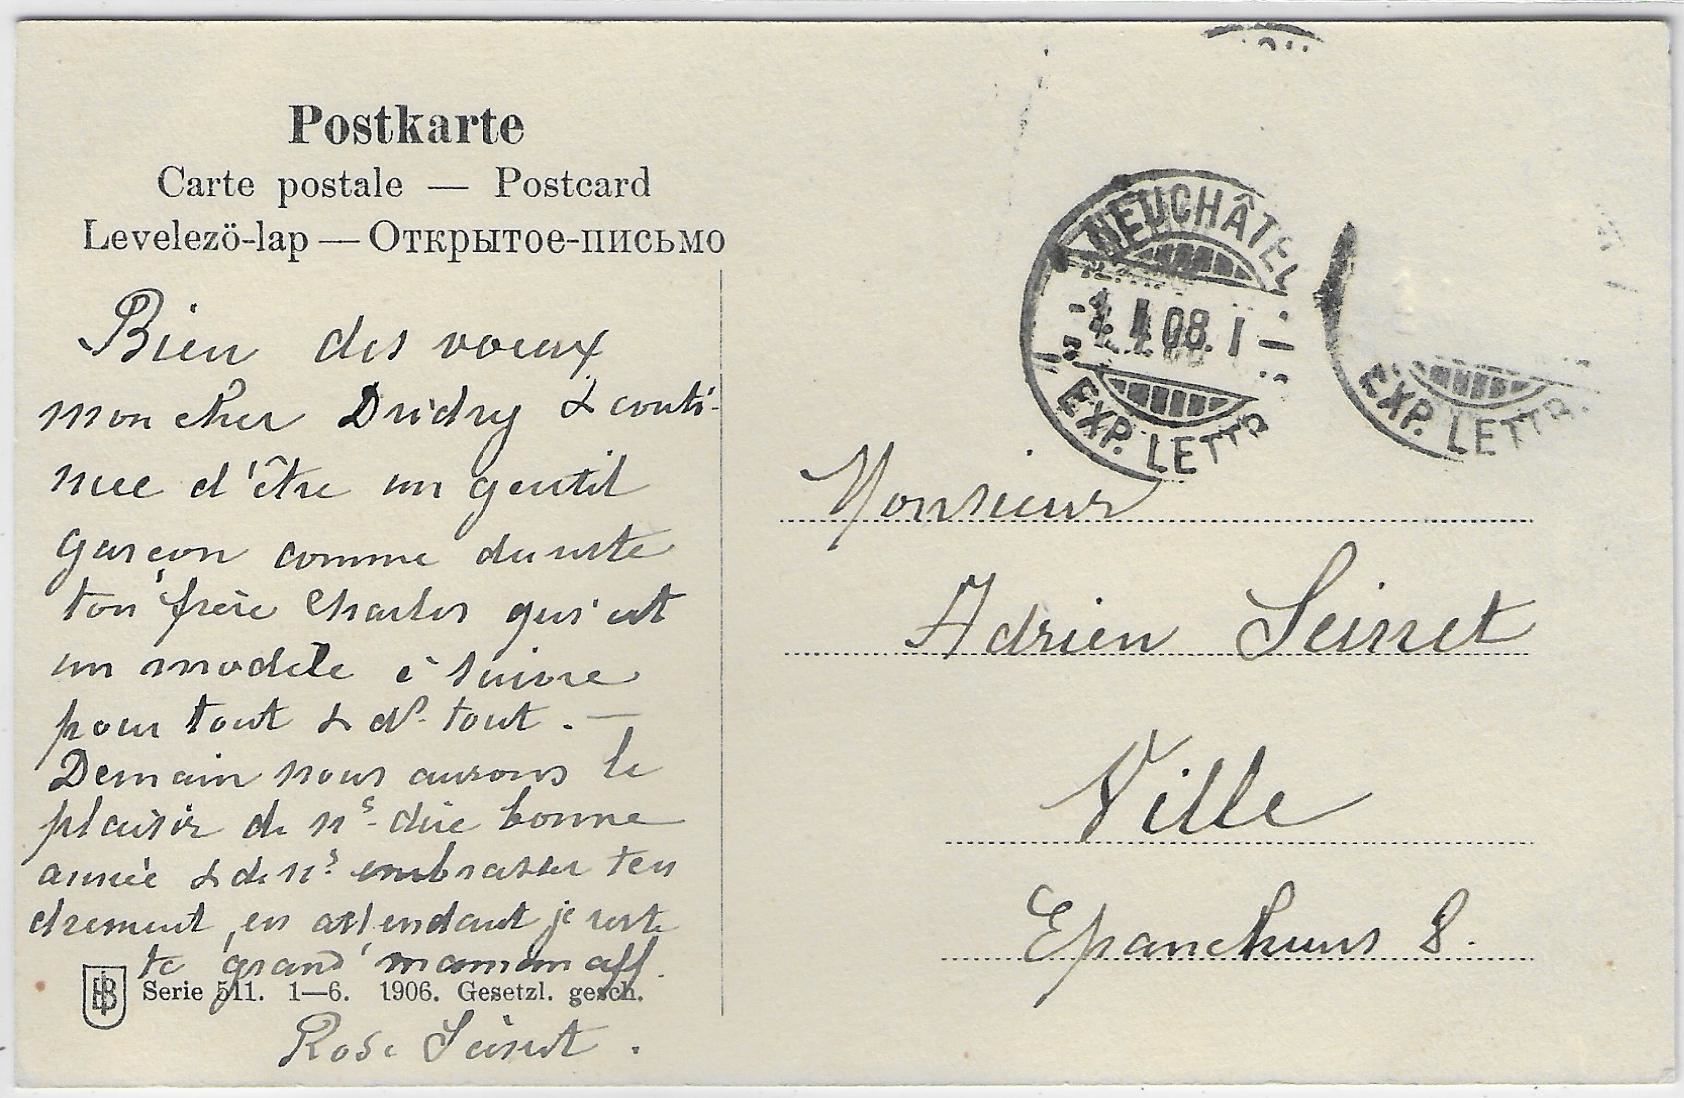 Postkarte
Carte postale — Postcard
Levelezö-lap — Открытое-письмо
Bien des voeux
mon cher Dridry & conti-
nue d'être un gentil
garçon comme du reste
ton frère Charles qui est
un modèle à suivre
pour tout & dº tout. —
Demain nous aurons le
plaisir de ns- dire bonne
année & de ns embrasser ten
drement, en attendant je reste
ta grand' maman aff.
Serie 511. 1—6. 1906. Gesetzl. gesch.
Rose Seinet.
NEUCHÂTEL
1 08. I
EXP. LETTR.
EXP. LETTR.
Monsieur
Adrien Seinet
Ville
Epancheurs 8.